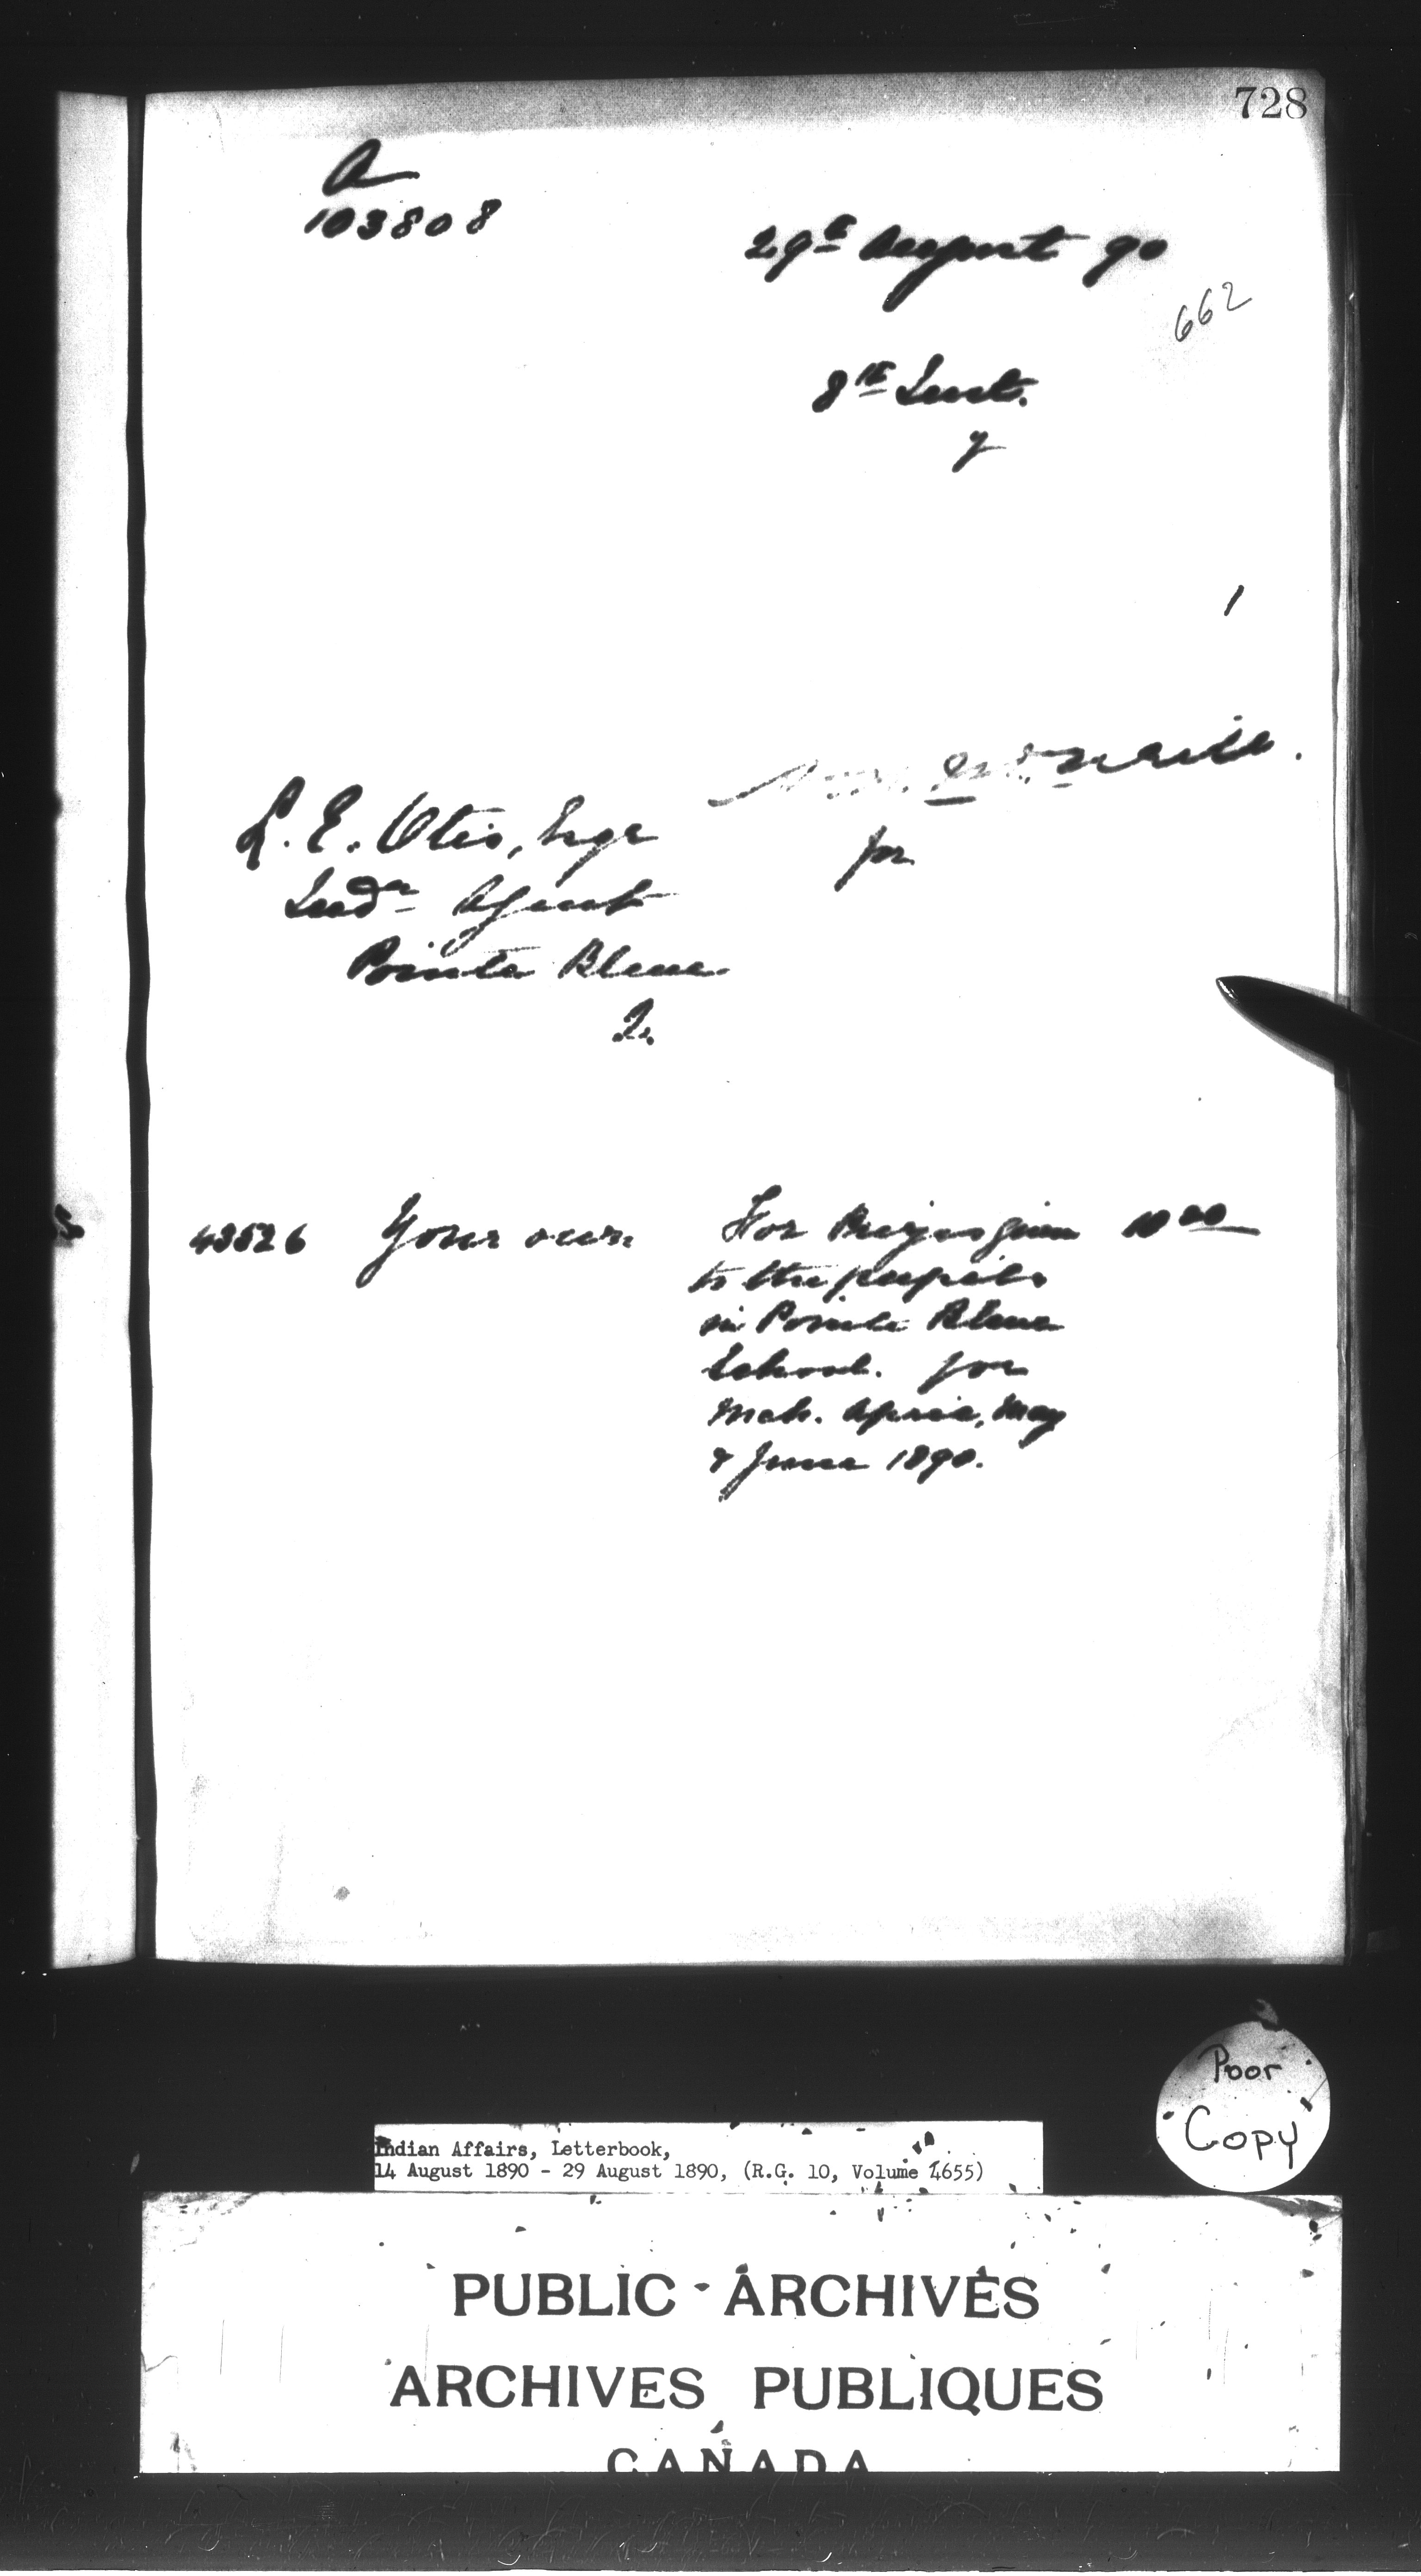 728
A
103808
29th August 90
662
8th Inst.
y
1
L. E. Otis, Esqr
for
Indn Agent
Pointe Bleue
Q.
43526 Your own For Prizes given 10 00
to the pupils
in Pointe Bleue
School. for
Mch. April, May
& June 1890.
Poor
Copy
Indian Affairs, Letterbook,
14 August 1890 - 29 August 1890, (R.G. 10, Volume 4655)
PUBLIC ARCHIVES
ARCHIVES PUBLIQUES
CANADA